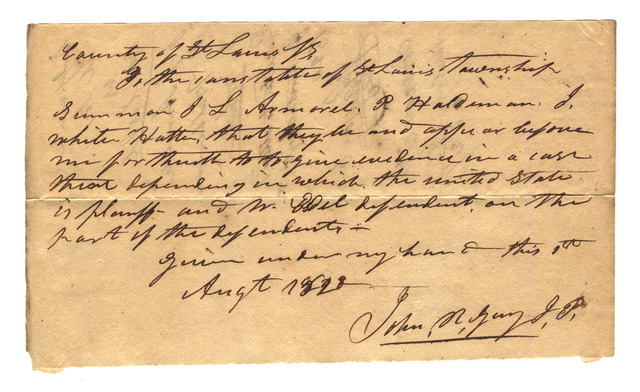 County of St Louis SS
To the constable of St Louis Township
Summon J L Armorel. P Haldeman. J.
White Hatter, that they be and appear before
me forthwith to give evidence in a case
there depending in which the united State
is plantff and W. dependent, on the
part of the dependents —
Given under my hand this 1st
Augt
John, R, Guy J, P,